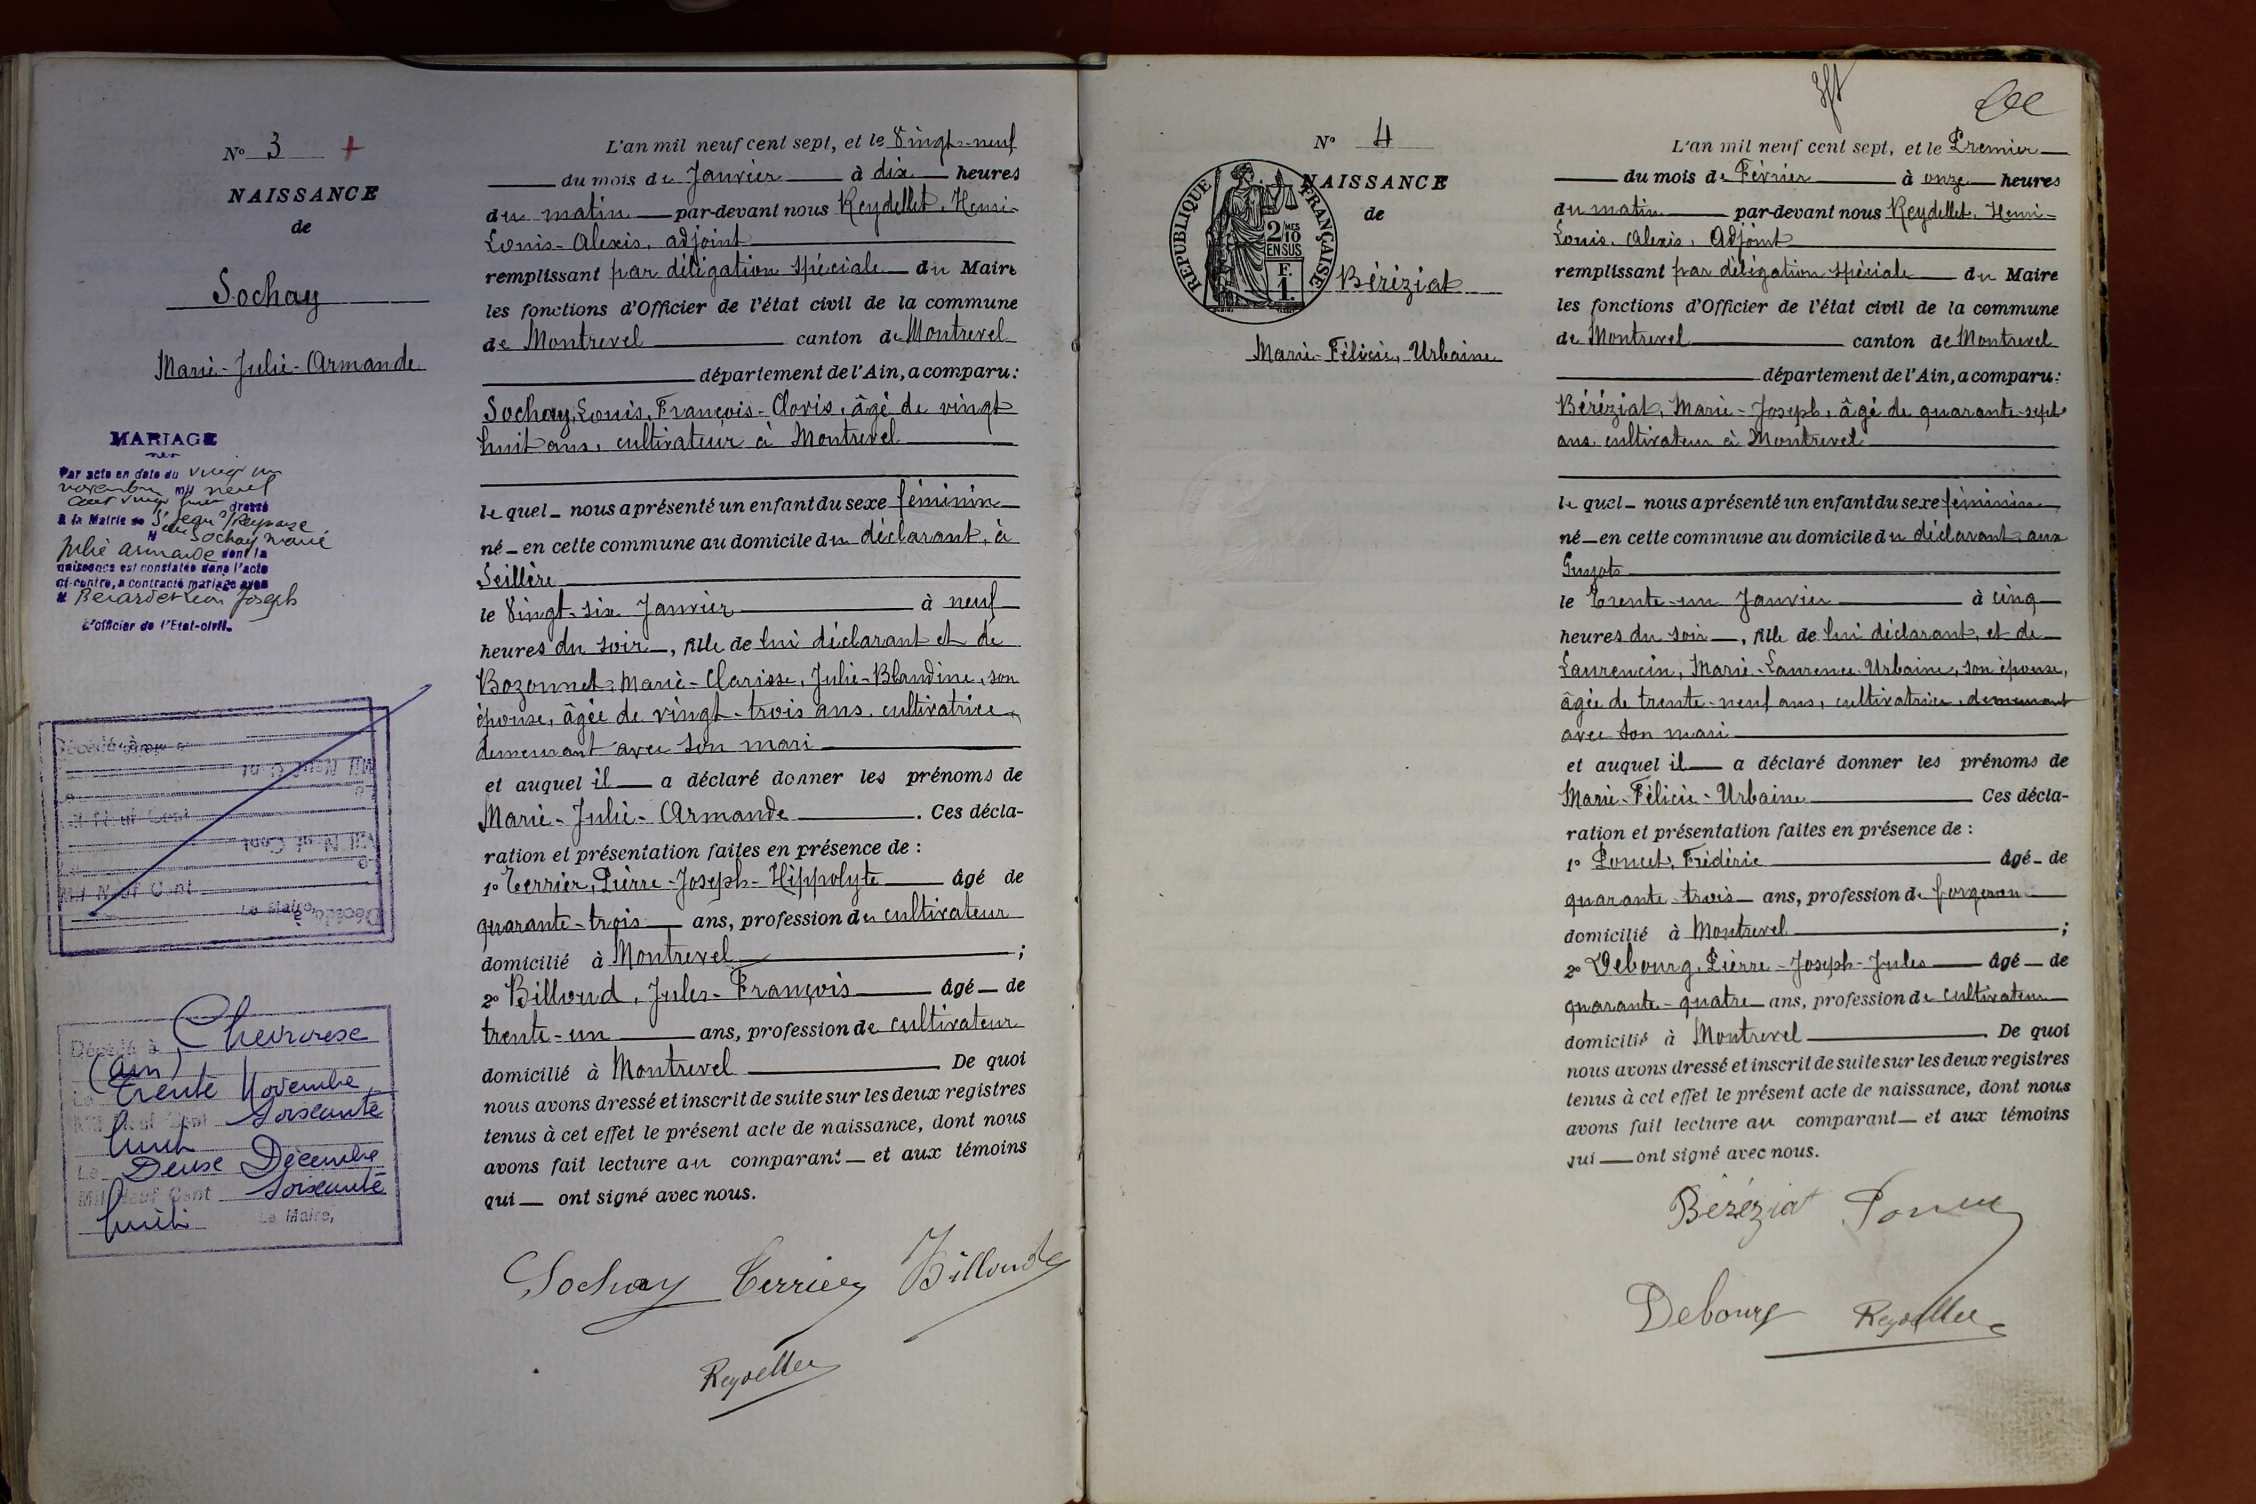 N° 3 +
NAISSANCE
de
Sochay
Marie-Julie-Armande
MARIAGE
Par acte en date du vingt un
novembre mil neuf
cent vingt
dressé
à la Mairie de St Jean s/ Reyssouze
Sochay Marie
Julie Armande dont la
naissance est constatée dans l'acte
ci-contre, a contracté mariage avec
M Joseph
L'officier de l'Etat-civil.
Décédé à
Mil Neuf Cent
Mil Neuf Cent
Mil Neuf Cent
Décédé à
Décédé à Chevroux
(Ain)
Le Trente Novembre
Mil Neuf Cent Soixante
huit
Le Deuse Décembre
Mil Neuf Cent Soixante
huit Le Maire,
L'an mil neuf cent sept, et le Vingt-neuf
du mois de Janvier à dix heures
du matin par-devant nous Reydellet, Henri-
Louis-Alexis, adjoint
remplissant par délégation spéciale du Maire
les fonctions d'Officier de l'état civil de la commune
de Montrevel canton de Montrevel
département de l'Ain, a comparu:
Sochay, Louis, François-Clovis, âgé de vingt
huit ans, cultivateur à Montrevel
le quel nous a présenté un enfant du sexe féminin
né en cette commune au domicile du déclarant, à
Seillère
le Vingt-six Janvier à neuf
heures du soir, fille de lui déclarant et de
Bozonnet, Marie-Clarisse, Julie-Blandine, son
épouse, âgée de vingt-trois ans, cultivatrice,
demeurant avec son mari
et auquel il a déclaré donner les prénoms de
Marie-Julie-Armande. Ces décla-
ration et présentation faites en présence de :
1° Terrier, Pierre-Joseph-Hippolyte âgé de
quarante-trois ans, profession de cultivateur
domicilié à Montrevel ;
2° Billoud, Jules-François âgé de
trente-un ans, profession de cultivateur
domicilié à Montrevel De quoi
nous avons dressé et inscrit de suite sur les deux registres
tenus à cet effet le présent acte de naissance, dont nous
avons fait lecture au comparant et aux témoins
qui ont signé avec nous.
Sochay Terrier Billoud
Reydellet
N° 4
NAISSANCE
de
REPUBLIQUE FRANÇAISE
2 MES
10
EN SUS
F.
1.
Béréziat
Marie-Félicie, Urbaine
L'an mil neuf cent sept, et le Premier
du mois de Février à onze heures
du matin par-devant nous Reydellet, Henri-
Louis, Alexis, Adjoint
remplissant par délégation spéciale du Maire
les fonctions d'Officier de l'état civil de la commune
de Montrevel canton de Montrevel
département de l'Ain, a comparu:
Béréziat, Marie-Joseph, âgé de quarante-sept
ans cultivateur à Montrevel
le quel nous a présenté un enfant du sexe féminin
né en cette commune au domicile du déclarant aux
le Trente-un Janvier à cinq
heures du soir, fille de lui déclarant, et de
Laurencin, Marie-Laurence-Urbaine, son épouse,
âgée de trente-neuf ans, cultivatrice, demeurant
avec son mari
et auquel il a déclaré donner les prénoms de
Marie-Félicie-Urbaine Ces décla-
ration et présentation faites en présence de :
1° Poncet, Frédéric âgé de
quarante-trois ans, profession de forgeron
domicilié à Montrevel ;
2° Debourg, Pierre-Joseph-Jules âgé de
quarante-quatre ans, profession de cultivateur
domicilié à Montrevel De quoi
nous avons dressé et inscrit de suite sur les deux registres
tenus à cet effet le présent acte de naissance, dont nous
avons fait lecture au comparant et aux témoins
qui ont signé avec nous.
Béréziat Poncet
Debourg Reydellet